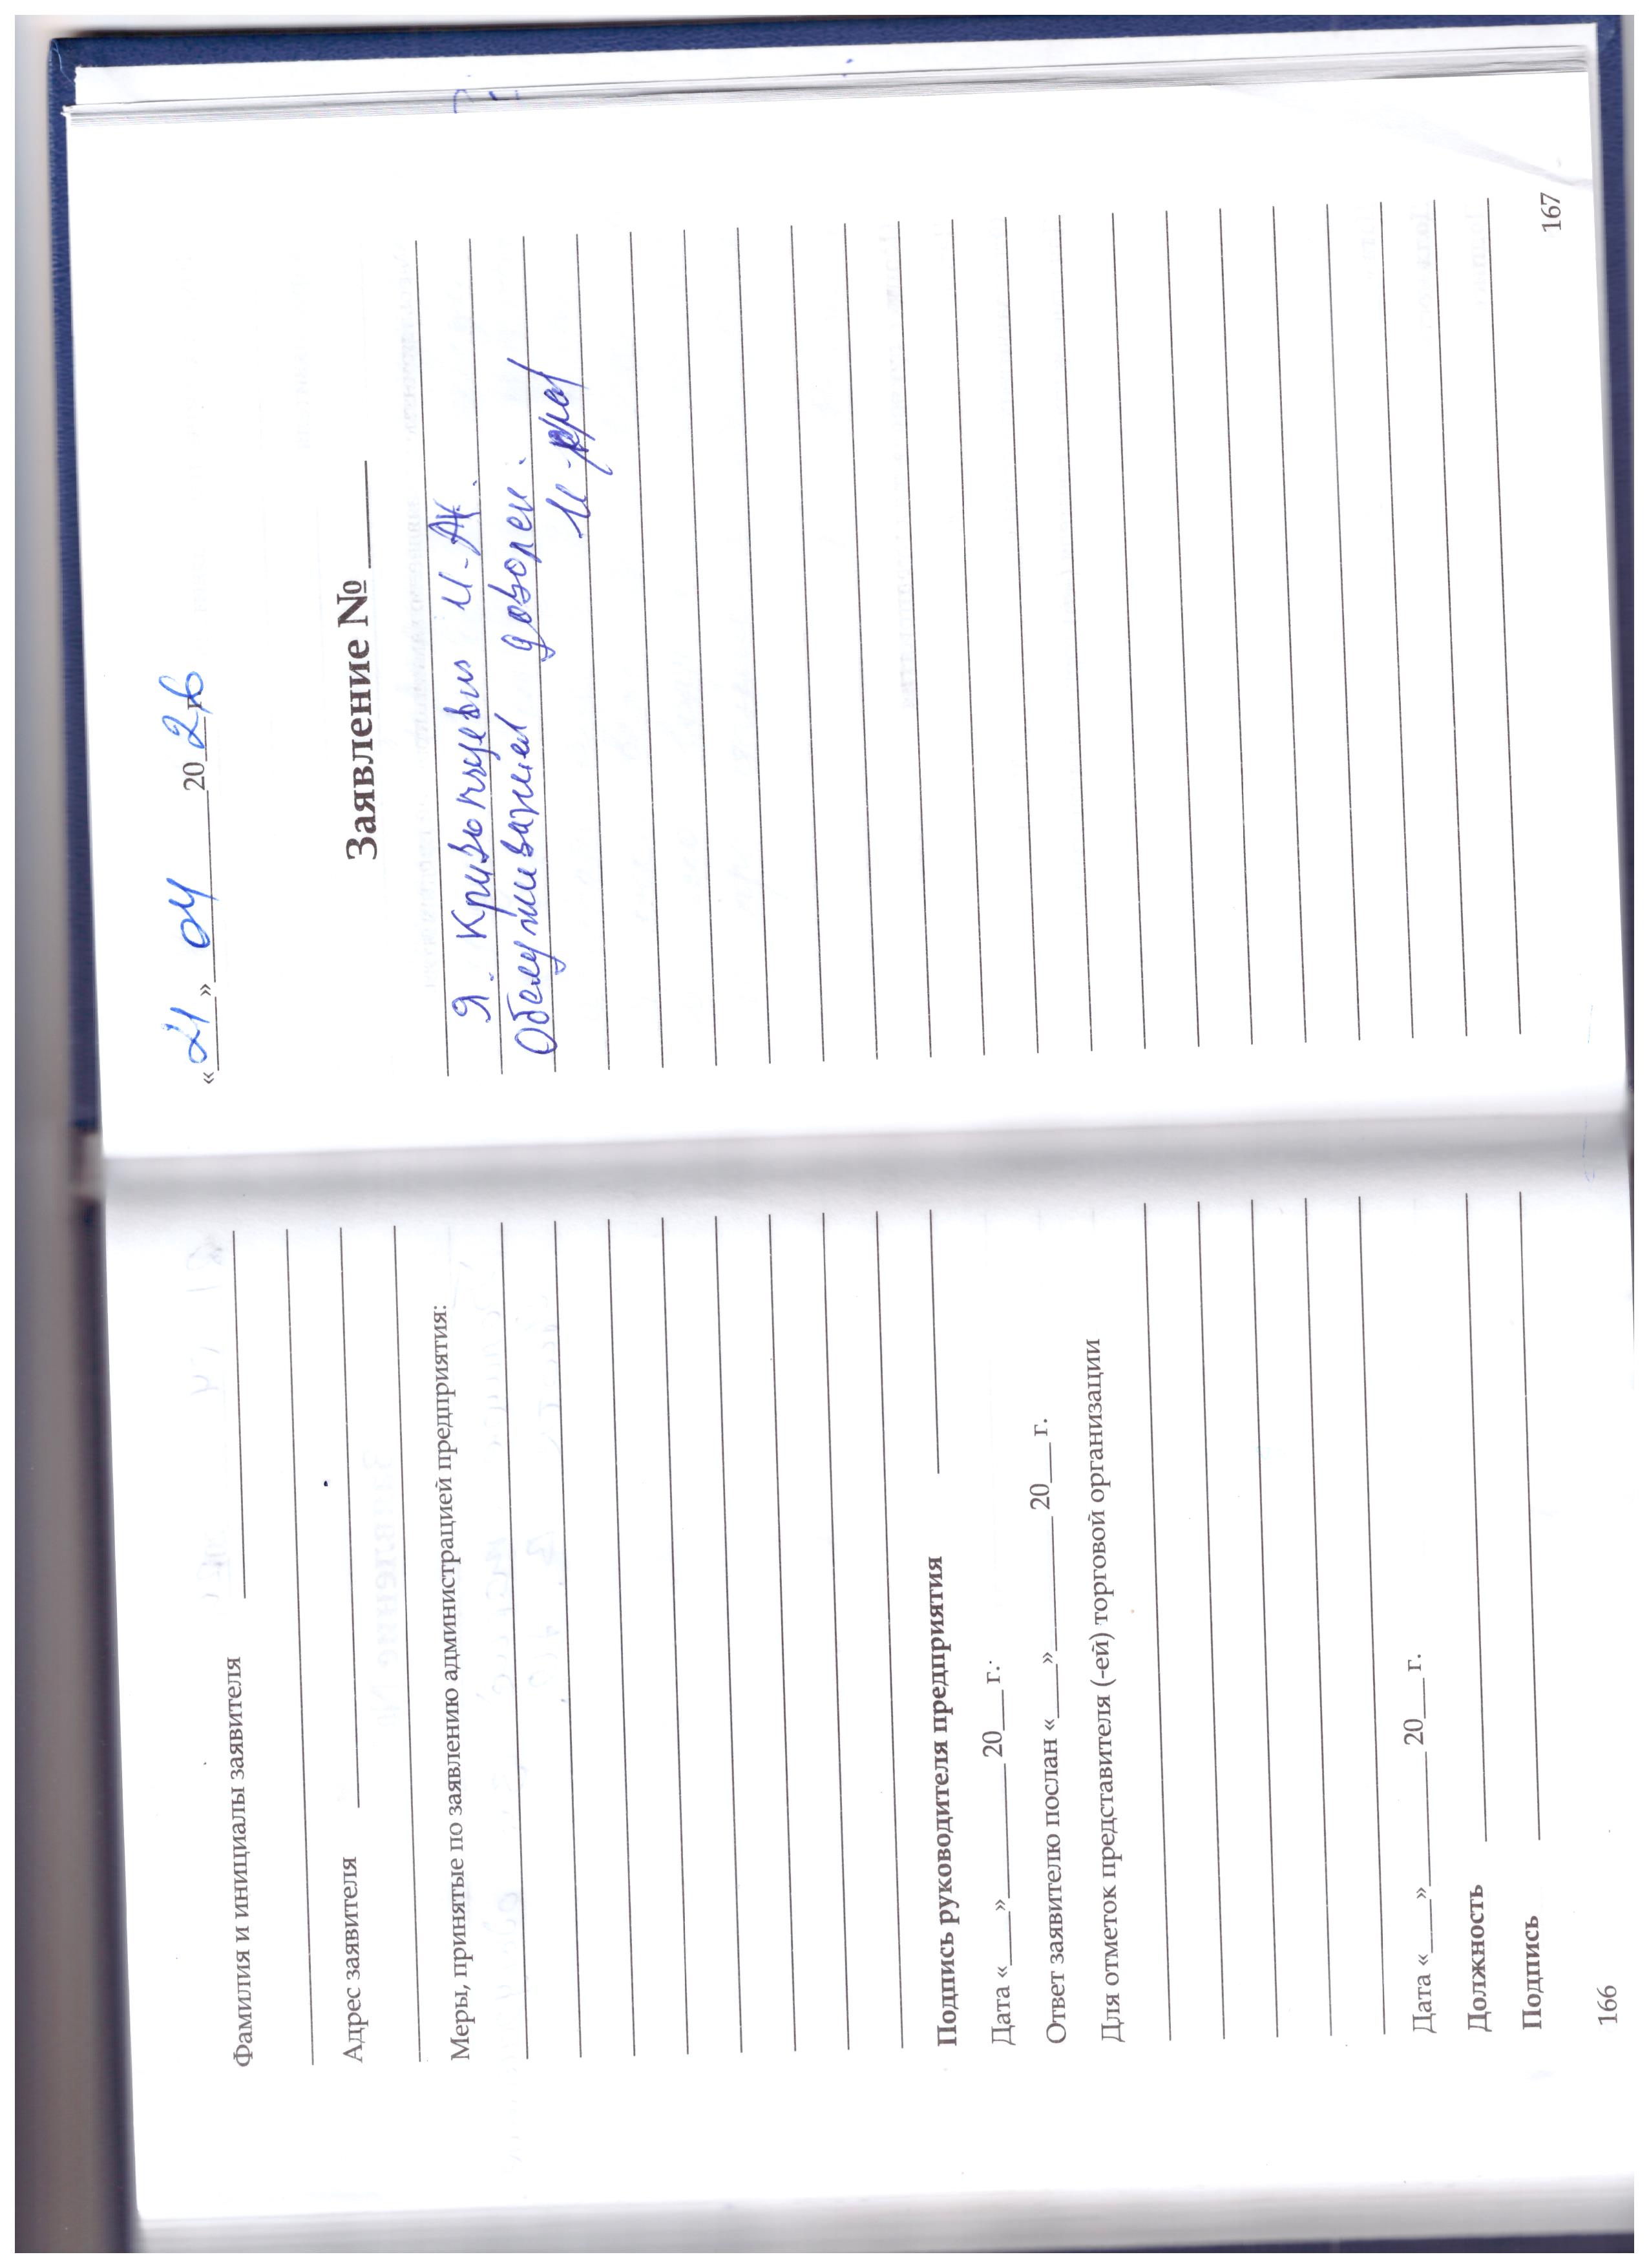 Фамилия и инициалы заявителя
Адрес заявителя
Меры, принятые по заявлению администрацией предприятия:
Подпись руководителя предприятия
Дата «___»________20__ г.
Ответ заявителю послан «___»________20__ г.
Для отметок представителя (-ей) торговой организации
Дата «___»________20__ г.
Должность
Подпись
166
«21» 04 2026
Заявление №
Я.
Обслуживанием доволен.
167